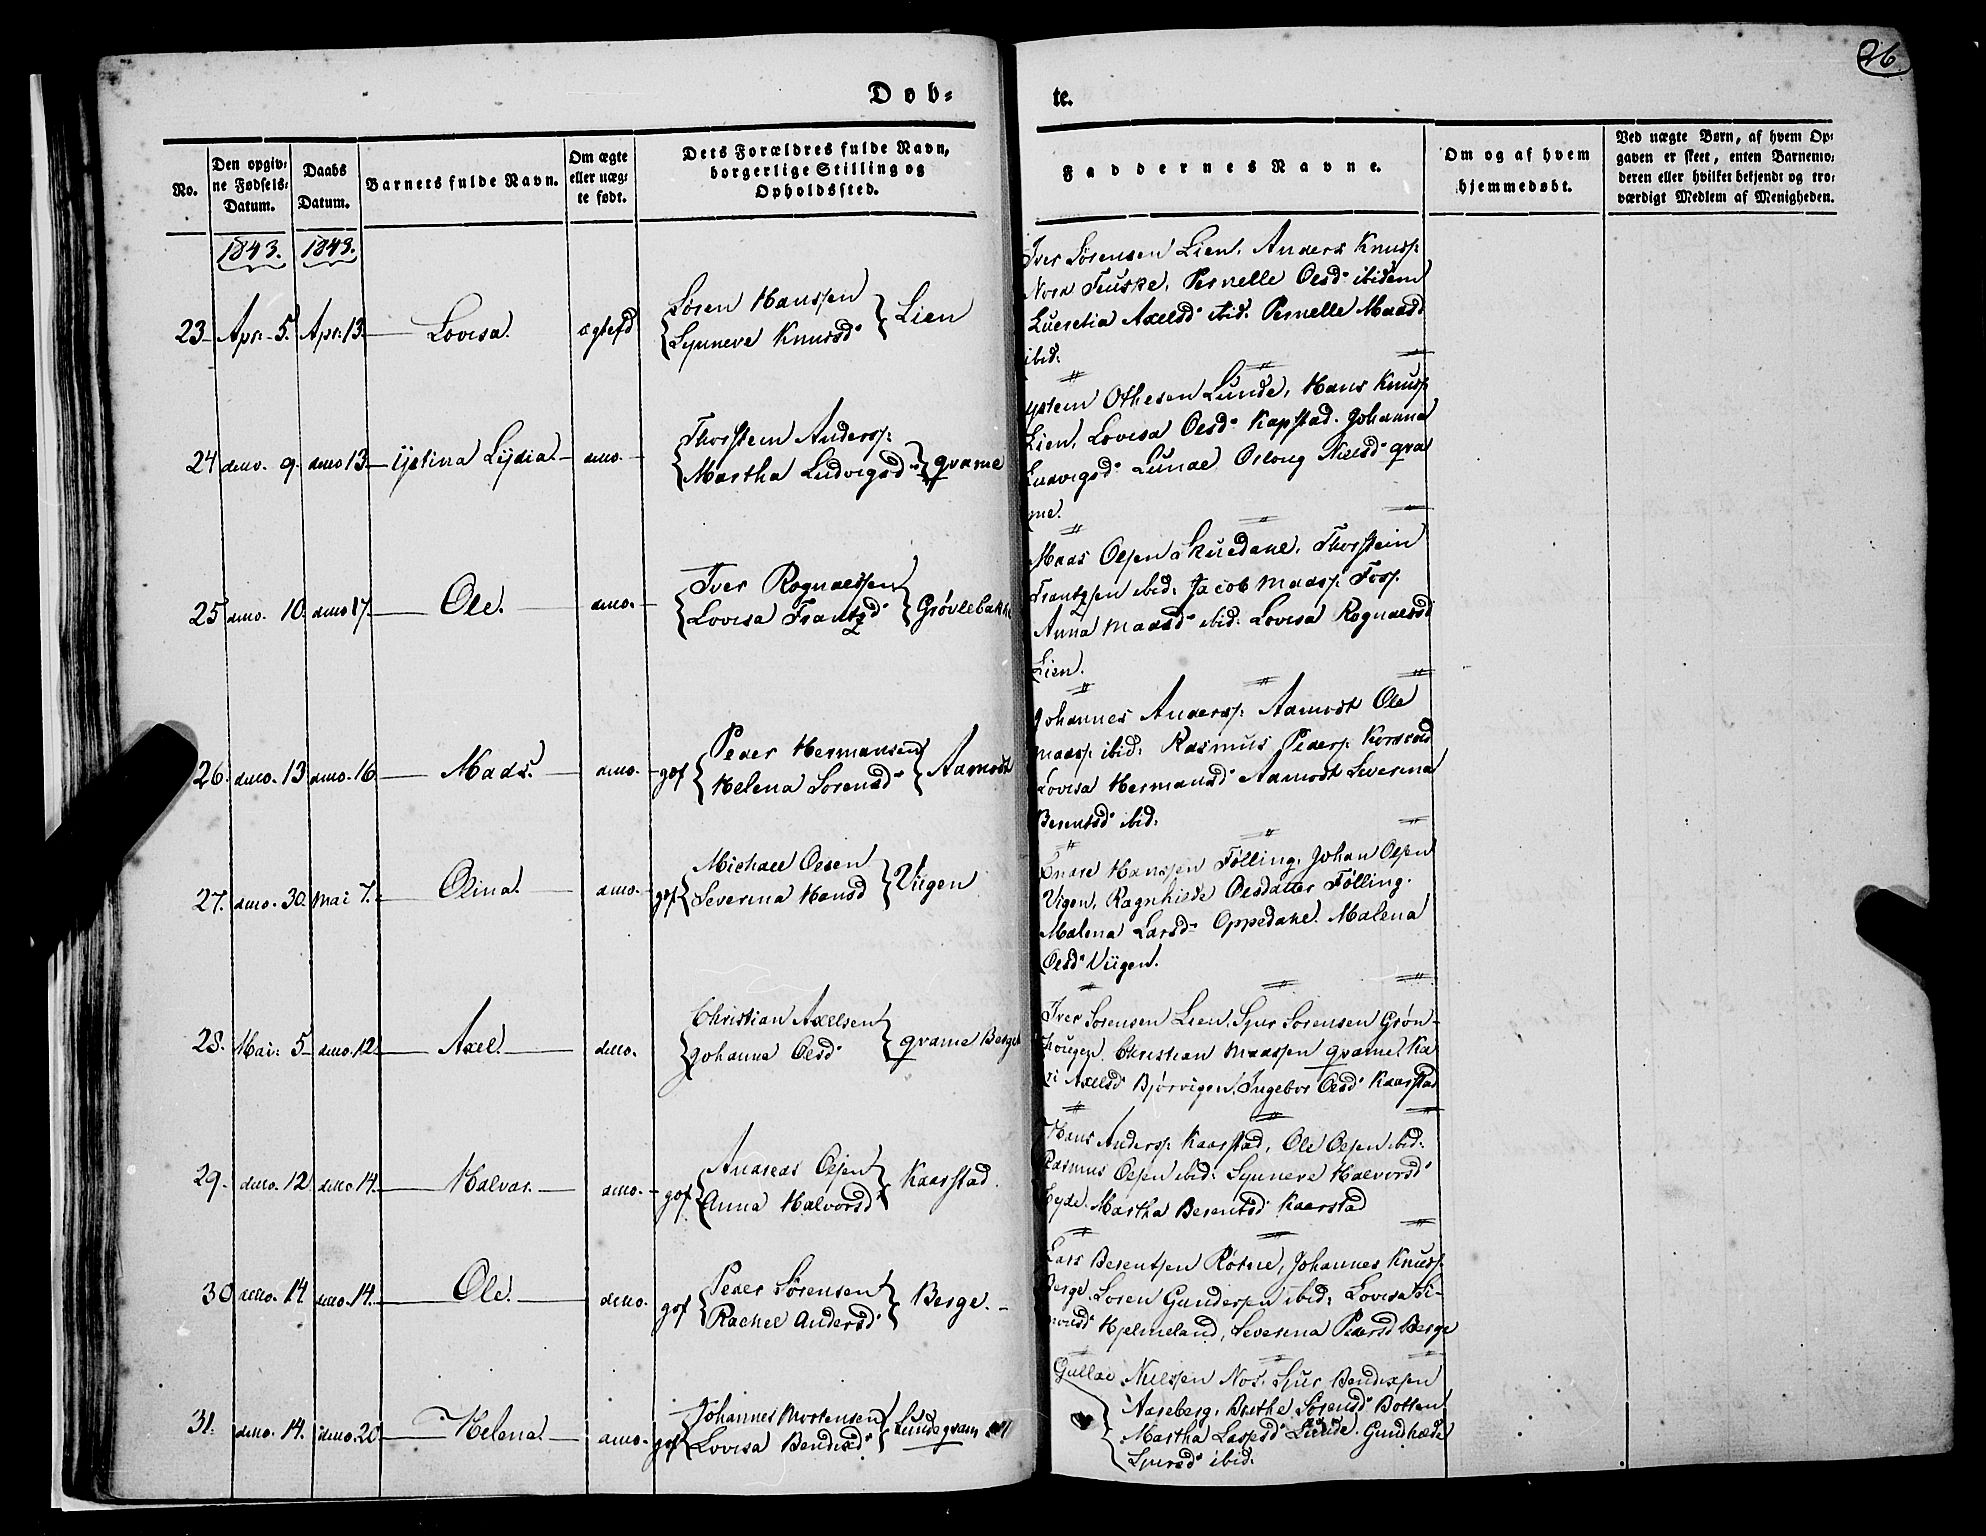 26
Døb-
te.
No.
Den opgiv-
ne Fødsels-
Datum.
Daabs
Datum.
Barnets fulde Navn.
Om ægte
eller uæg-
te født.
Dets Forældres fulde Navn,
borgerlige Stilling og
Opholdssted.
Faddernes Navne.
Om og af hvem
hjemmedøbt.
Ved uægte Børn, af hvem Op-
gaven er skeet, enten Barnemo-
deren eller hvilket bekjendt og tro-
værdigt Medlem af Menigheden.
1843. 1843.
23 Apr. 5. Apr. 13. Lovisa. ægtefd
Søren Hanssen
Synneve Knudsd
Lien
Iver Sørensen Lien, Anders Knuds:
Nora Fuske, Pernelle Olsd ibidem
Lucretia Axelsd ibid. Pernelle Madsd
ibid:
24 dmo. 9. dmo 13. Ystina Lydia. dmo.
Thorstein Anders:
Martha Ludvigsd
qvame
Ystein Othesen Lunde, Hans Knuds:
Lien, Lovisa Olsd Kapstad. Johanna
Ludvigsd Lunde Oloug Nielsd qva
me.
25 dmo. 10. dmo 17. Ole. dmo.
Iver Rognalssen
Lovisa Frantzd
Grøvlebakke
Mads Olsen Skuedahl, Thorstein
Frantzsen ibid: Jacob Madss: Foss:
Anna Madsd ibid: Lovisa Rognalsd
Lien.
26. dmo. 13 dmo. 16 Mads. dmo. gof
Peder Hermansen
Helena Sørensd
Aamodt
Johannes Anderss: Aamodt Ole
Madss: ibid: Rasmus Peders:
Lovisa Hermansd Aamodt Severina
Berentsd ibid:
27. dmo. 30. Mai 7. Olina. dmo. gof
Michael Olsen
Severina Hansd
Viigen
Hanssen Følling, Johan Olsen
Vigen, Ragnhilde Olsdatter Følling.
Malena Larsd Oppedahl. Malena
Olsd Viigen.
28. Mai: 5. dmo. 12. Axel. dmo.
Christian Axelsen
Johanna Olsd
qvame Berge
Iver Sørensen Lien, Sjur Sørensen Grøn-
hougen, Christian Madssen qvame, Ka
ri Axelsd Bjørvigen, Ingebor Olsd Kaarstad
29. dmo. 12 dmo 14. Halvor. dmo. gof
Andreas Olsen
Anna Halvorsd
Kaarstad.
Hans Anderss: Kaarstad, Ole Olsen ibid:
Rasmus Olsen ibid: Synneve Halvorsd
Eyde. Martha Berentsd Kaarstad
30 dmo. 14. dmo. 14. Ole. dmo. gof
Peder Sørensen
Rachel Andersd
Berge.
Lars Berentsen Røtne, Johannes Knuds:
Berge, Søren Gundersen ibid: Lovisa Si-
monsd Hjelmeland, Severina Pedersd Berge
31. dmo. 14. dmo. 20. Helena. dmo. gof
Johannes Mortensen
Lovisa Bendixd
Lunde qvam
Gullac Nielssen Nos. Sjur Bendixsen
Aaseberg, Brethe Sørensd Botten
Martha Laspsd Lunde. Gundhæde
Sjursd ibid.